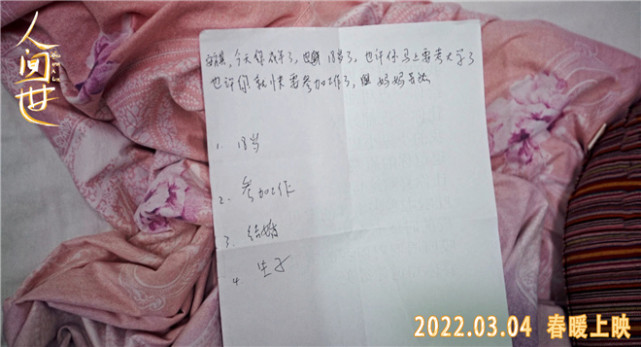 人间世
今天你成年了，18岁了，也许你马上要考大学了
也许你就快要参加工作了，但妈妈无法
1. 18岁
2. 参加工作
3. 结婚
4 生子
2022.03.04 春暖上映